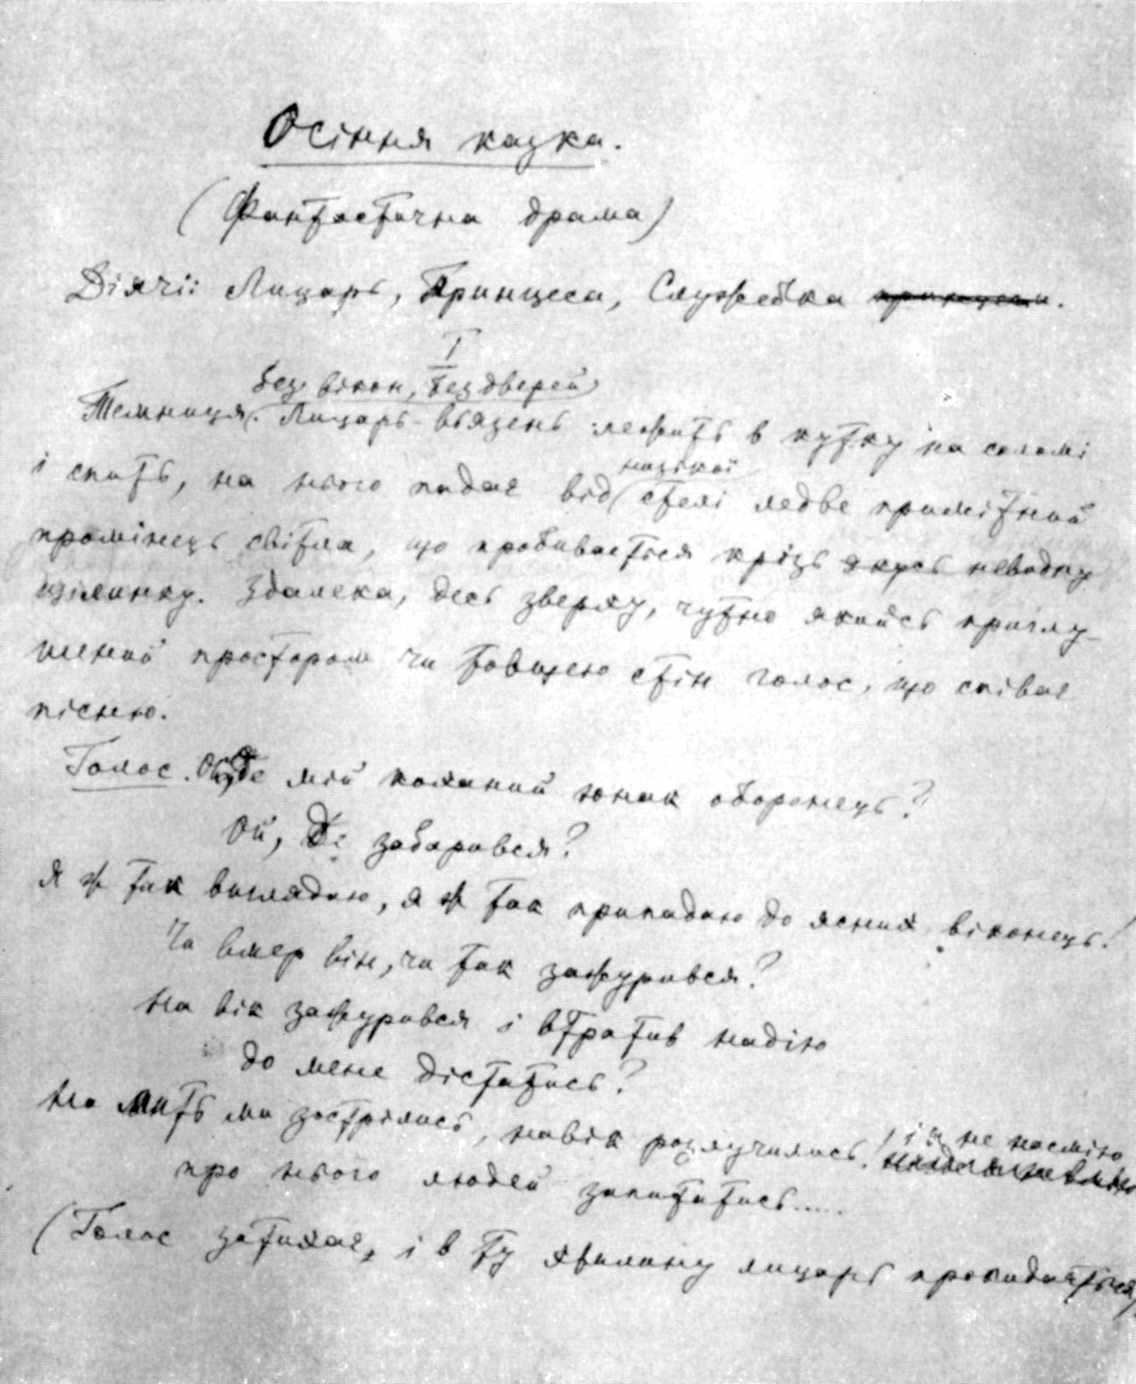 Осіння казка.
(Фантастична драма)
Діячі: Лицарь, Принцеса, Служебка принцеси.
I
без вікон, без дверей
Темниця. Лицарь-вьязень лежить в кутку на соломі
і спить, на нього падає від низької стелі ледве примітний
промінець світла, що пробивається крізь якусь невидну
щілинку. Здалека, десь зверху, чутно якийсь приглу-
шений простором чи товщею стін голос, що співає
пісню.
Голос. Ой, де мій коханий юнак оборонець?
Ой, Де забарився?
Я ж так виглядаю, я ж так припадаю до ясних віконець!
Чи вмер він, чи так зажурився?
На вік зажурився і втратив надію
до мене дістатись?
На мить ми зострілись, навік розлучились! і я не посмію
про нього людей запитатись.....
(Голос затихає, і в ту хвилину лицарь прокидається,